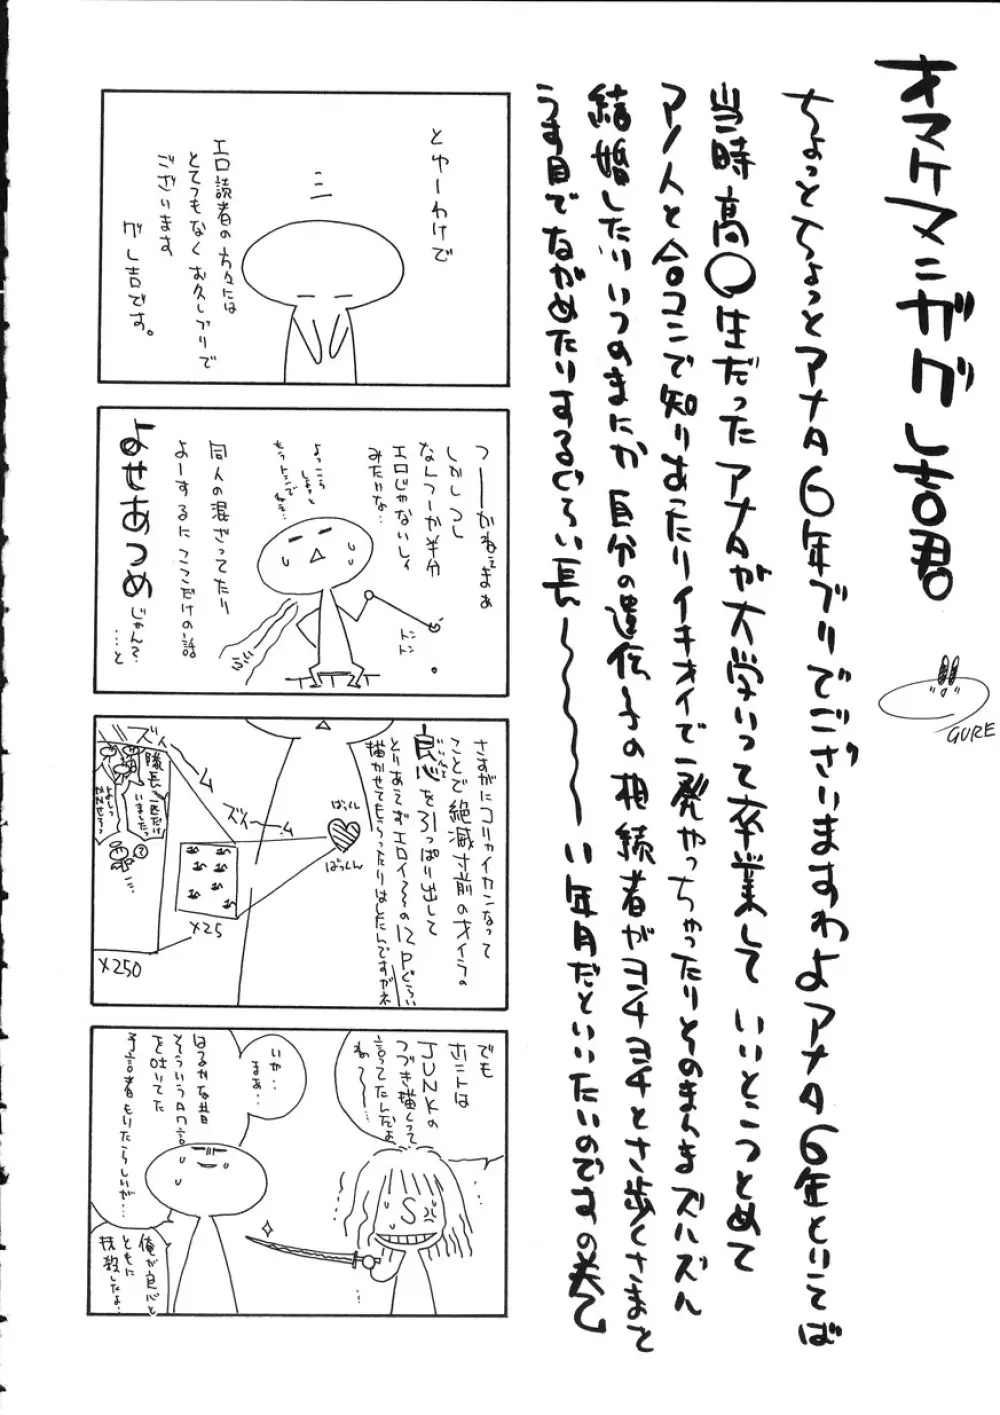 オマケマンガグレ吉君
ちょっとちょっとアナタ6年ブリでございますわよアナタ6年といてば
当時高○生だったアナタが大学いって卒業して いいとこつとめて
アノ人と合コンで知りあったりイキオイで一発やっちゃったりそのまんまズルズル
結婚したりいつのまにか自分の遺伝子の相続者がヨチヨチとさ歩くさまを
うす目でながめたりするぐらい長～～～い年月だといいたいのですの美乙
GURE
とゆーわけで
エロ読者の方々には
とてつもなくお久しブリで
ございます
グレ吉です。
つーかねぇまぁ
しかしつし
なんつーか半分
エロじゃないしィ
みたいな…
よっこら
しょっと
もうトンで
ねぇ…
ドン
トン
同人の混ざってたり
よーするにここだけの話
よせあつめ
じゃん?
…と
さすがにコリャイカンなって
ことで絶滅寸前のオイラの
良心を引っぱり出して
とりあえずエロイ～の12Pぐらい
描かせてもらったりはしたんですがネ
ばっくん
ばっくん
ズイーーム
ズイーーム
×25
×250
隊長一匹だけ
いましたっ
でも
ホントは
JUNKの
つづき描くって
言ってたんだよ
ね～～…
いや…
まぁ…
はるかな昔
そういうAた言
を吐いてた
予言者もいたらしいが…
俺が良心と
ともに
抹殺したよ…
S